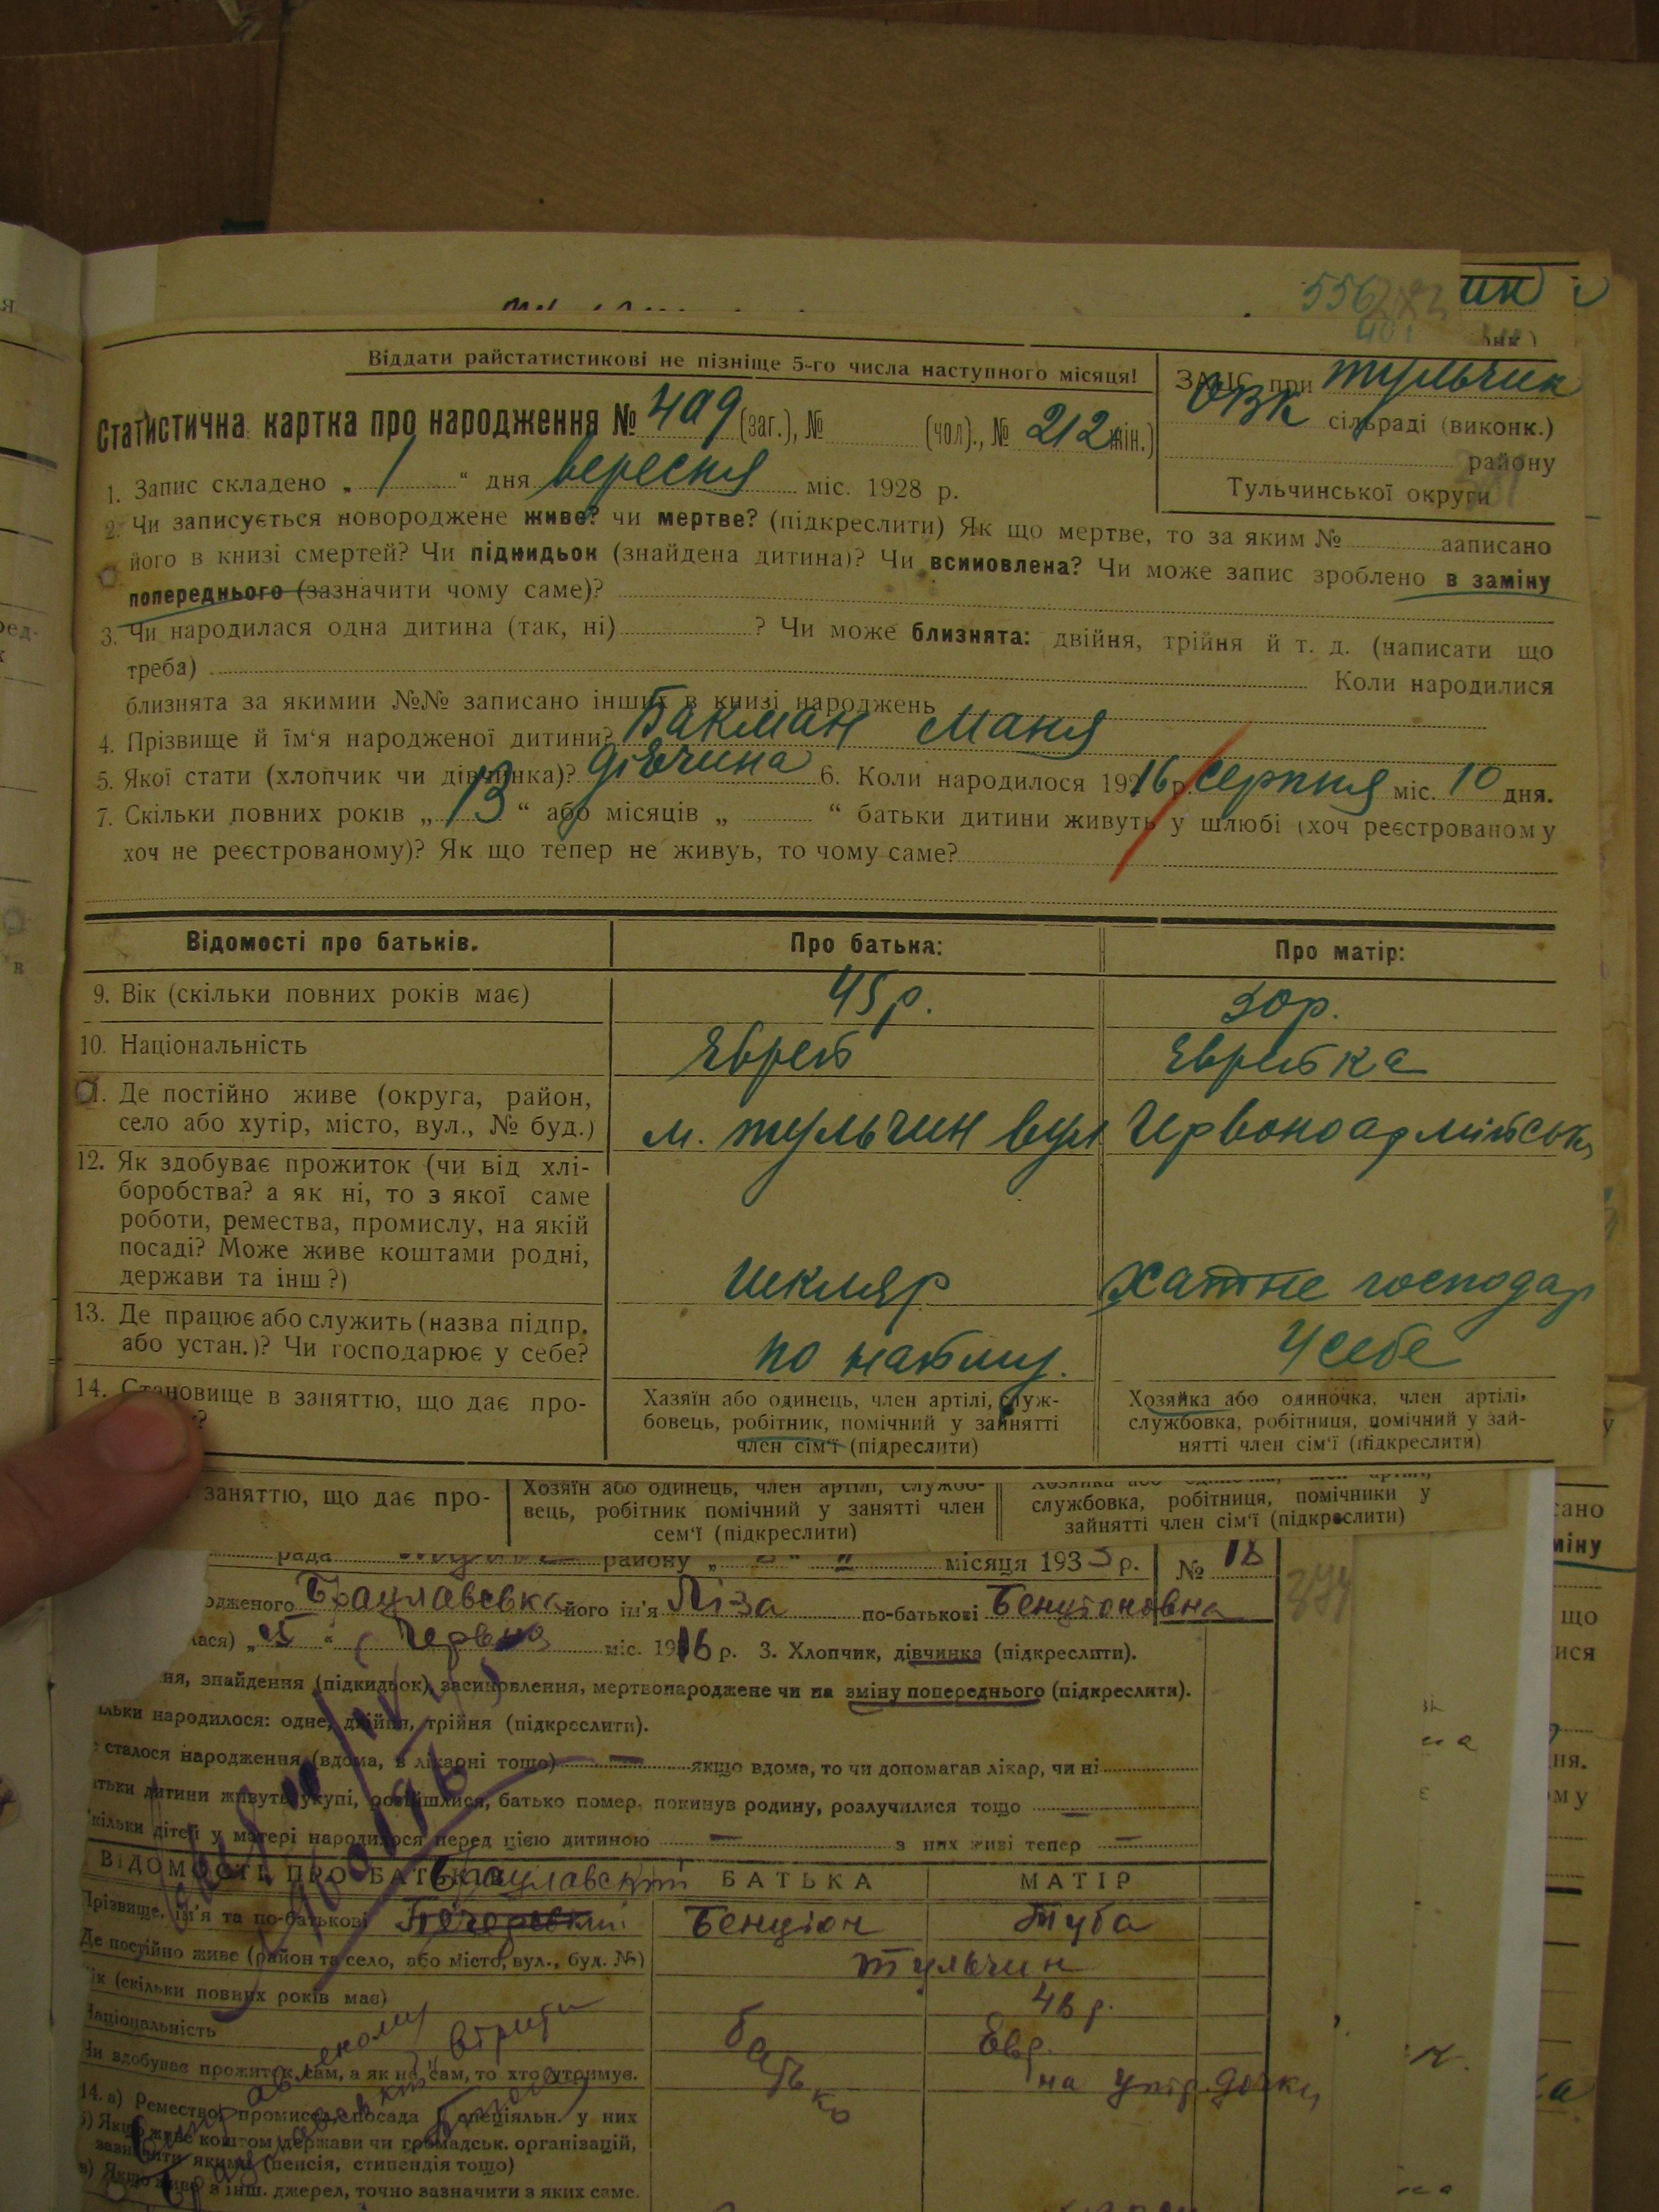 556
ин
Віддати райстатистикові не пізніще 5-го числа наступного місяця!
ЗАПС при Тульчин
ОВК сільраді (виконк.)
району
Тульчинської округи
Статистична картка про народження № 409 (заг.), № (чол)., № 212 жін.)
1. Запис складено „ 1 “ дня вересня міс. 1928 р.
2. Чи записується новороджене живе? чи мертве? (підкреслити) Як що мертве, то за яким № ааписано
його в книзі смертей? Чи підкидьок (знайдена дитина)? Чи всиновлена? Чи може запис зроблено в заміну
попереднього (зазначити чому саме)?
3. Чи народилася одна дитина (так, ні) ? Чи може близнята: двійня, трійня й т. д. (написати що
треба) Коли народилися
близнята за якимии №№ записано інших в книзі народжень
4. Прізвище й їм‘я народженої дитини? Бакман Маня
5. Якої стати (хлопчик чи дівчинка)? дівчина 6. Коли народилося 1916 р. серпня міс. 10 дня.
7. Скільки повних років „ 13 “ або місяців „ “ батьки дитини живуть у шлюбі (хоч реєстрованому
хоч не реєстрованому)? Як що тепер не живуь, то чому саме?
Відомості про батьків. Про батька: Про матір:
9. Вік (скільки повних років має) 45 р. 30р.
10. Національність Єврей Єврейка
11. Де постійно живе (округа, район,
село або хутір, місто, вул., № буд.) м. Тульчин вул Червоноармійська
12. Як здобуває прожиток (чи від хлі-
боробства? а як ні, то з якої саме
роботи, ремества, промислу, на якій
посаді? Може живе коштами родні,
держави та інш?) Шкляр Хатне господар
13. Де працює або служить (назва підпр.
або устан.)? Чи господарює у себе? по найму. У себе
14. Становище в заняттю, що дає про-
Хазяїн або одинець, член артілі, служ-
бовець, робітник, помічний у зайнятті
член сім‘ї (підреслити)
Хозяйка або одиночка, член артілі,
службовка, робітниця, помічний у зай-
нятті член сім‘ї (підкреслити)
заняттю, що дає про-
Хозяїн або одинець, член артілі, службо-
вець, робітник помічний у занятті член
сем‘ї (підкреслити)
службовка, робітниця, помічники у
зайнятті член сім‘ї (підкреслити)
рада району місяця 1933 р. № 18
одженого Брацлавська його ім'я Ліза по-батькові Бенціоновна
лася) Червня міс. 1916 р. 3. Хлопчик, дівчинка (підкреслити).
ня, знайдення (підкидьок), засиновлення, мертвонароджене чи на зміну попереднього (підкреслити).
ільки народилося: одне, двійня, трійня (підкреслити).
сталося народження (вдома, в лікарні тощо) — якщо вдома, то чи допомагав лікар, чи ні
тьки дитини живуть укупі, розійшлися, батько помер, покинув родину, розлучилися тощо —
кільки дітей у матері народилося перед цією дитиною — з них живі тепер —
ВІДОМОСТЬ ПРО БАТЬКІВ БАТЬКА МАТІР
Брацлавський
Прізвище, ім'я та по-батькові Бенціон Туба
Де постійно живе (район та село, або місто, вул., буд. №) Тульчин
ік (скільки повних років має) 48 р.
Національність Евр.
Чи здобуває прожиток сам, а як не сам, то хто утримує. батько на утр. дочки
14. а) Ремество, промисел, посада й спеціяльн. у них
б) Якщо живе коштом держави чи громадськ. організацій,
зазначити якими (пенсія, стипендія тощо)
в) Якщо живе з інш. джерел, точно зазначити з яких саме.